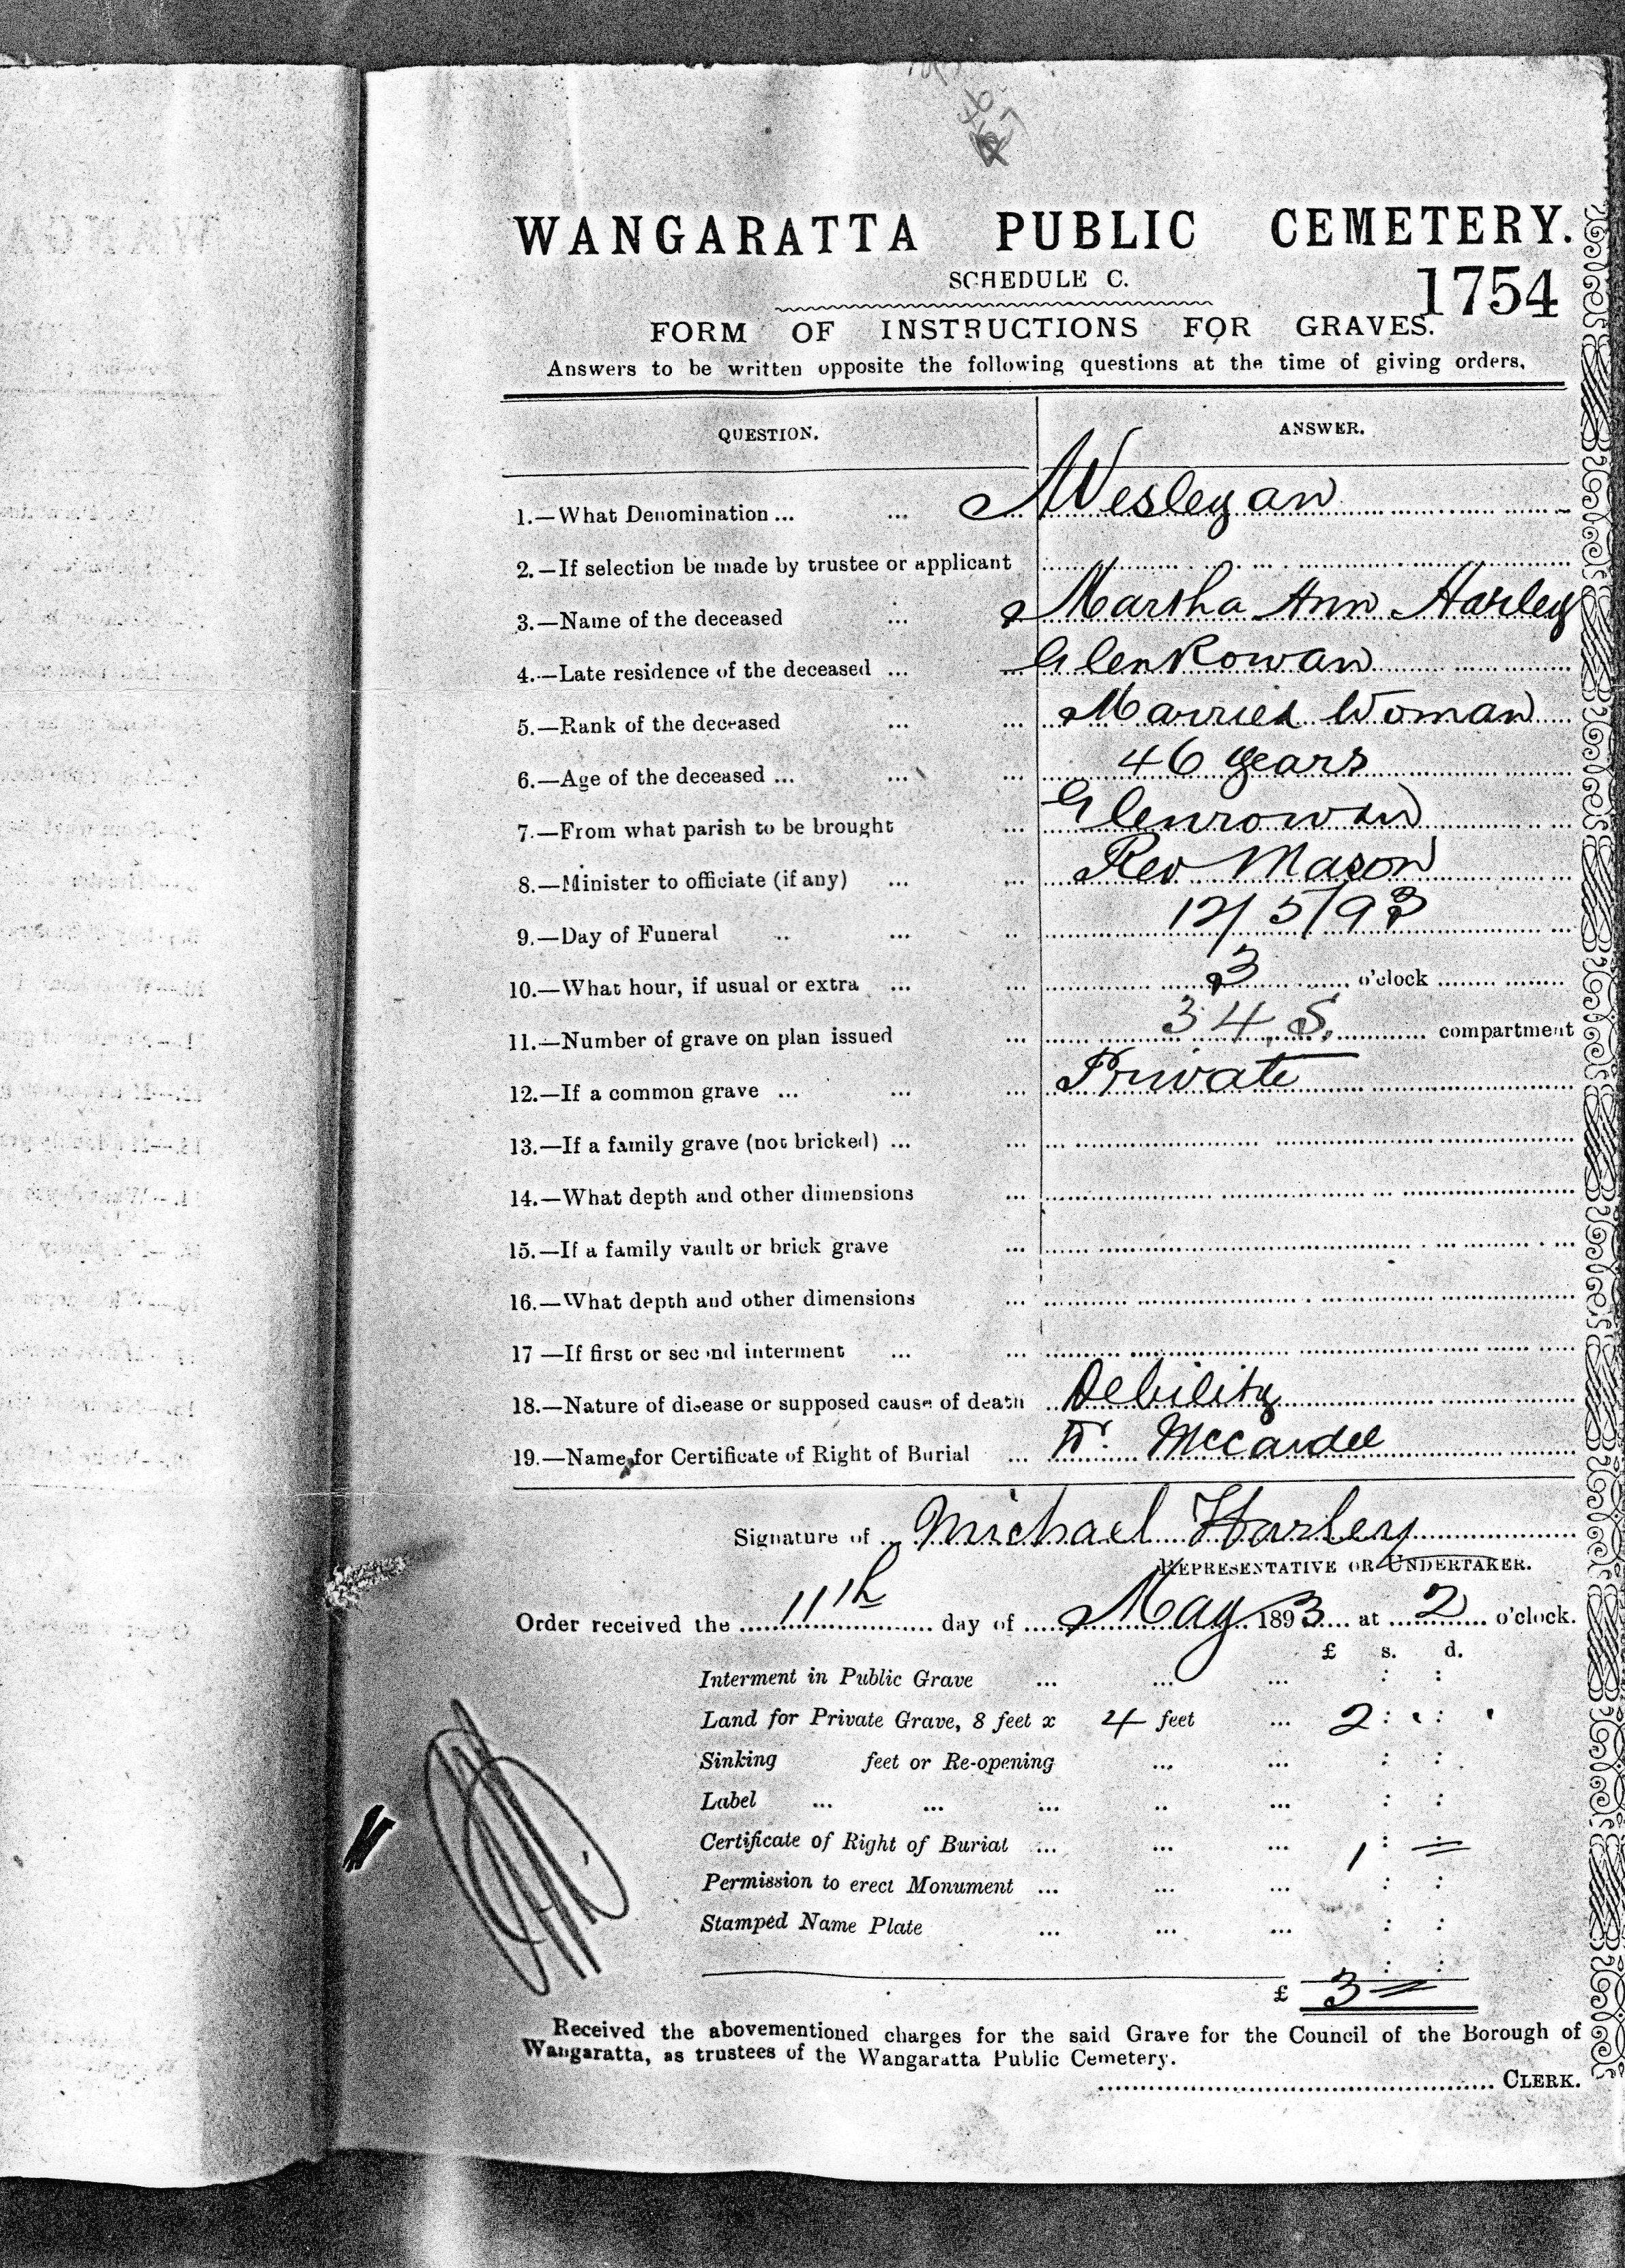 WANGARATTA PUBLIC CEMETERY.
SCHEDULE C.
1754
FORM OF INSTRUCTIONS FOR GRAVES.
Answers to be written opposite the following questions at the time of giving orders.
QUESTION. ANSWER.
1.—What Denomination ... ... Wesleyan
2.—If selection be made by trustee or applicant
3.—Name of the deceased ... Martha Ann Harley
4.—Late residence of the deceased ... ... GlenRowan
5.—Rank of the deceased ... ... Married Woman
6.—Age of the deceased ... ... ... 46 years
7.—From what parish to be brought ... Glenrowan
8.—Minister to officiate (if any) ... ... Rev Mason
9.—Day of Funeral ... ... ... 12/5/93
10.—What hour, if usual or extra ... ... 3 o'clock
11.—Number of grave on plan issued ... 34 S. compartment
12.—If a common grave ... ... ... Private
13.—If a family grave (not bricked) ... ...
14.—What depth and other dimensions ...
15.—If a family vault or brick grave ...
16.—What depth and other dimensions ...
17—If first or second interment ... ...
18.—Nature of disease or supposed cause of death Debility
19.—Name for Certificate of Right of Burial ... Mccardel
Signature of Michael Harley
REPRESENTATIVE OR UNDERTAKER.
Order received the 11th day of May 1893 at 2 o'clock.
£ s. d.
Interment in Public Grave ... ... ... : :
Land for Private Grave, 8 feet x 4 feet ... 2 : :
Sinking feet or Re-opening ... ... : :
Label ... ... ... ... ... : :
Certificate of Right of Burial ... ... ... 1 : :
Permission to erect Monument ... ... ... : :
Stamped Name Plate ... ... ... : :
£ 3
Received the abovementioned charges for the said Grave for the Council of the Borough of
Wangaratta, as trustees of the Wangaratta Public Cemetery.
CLERK.